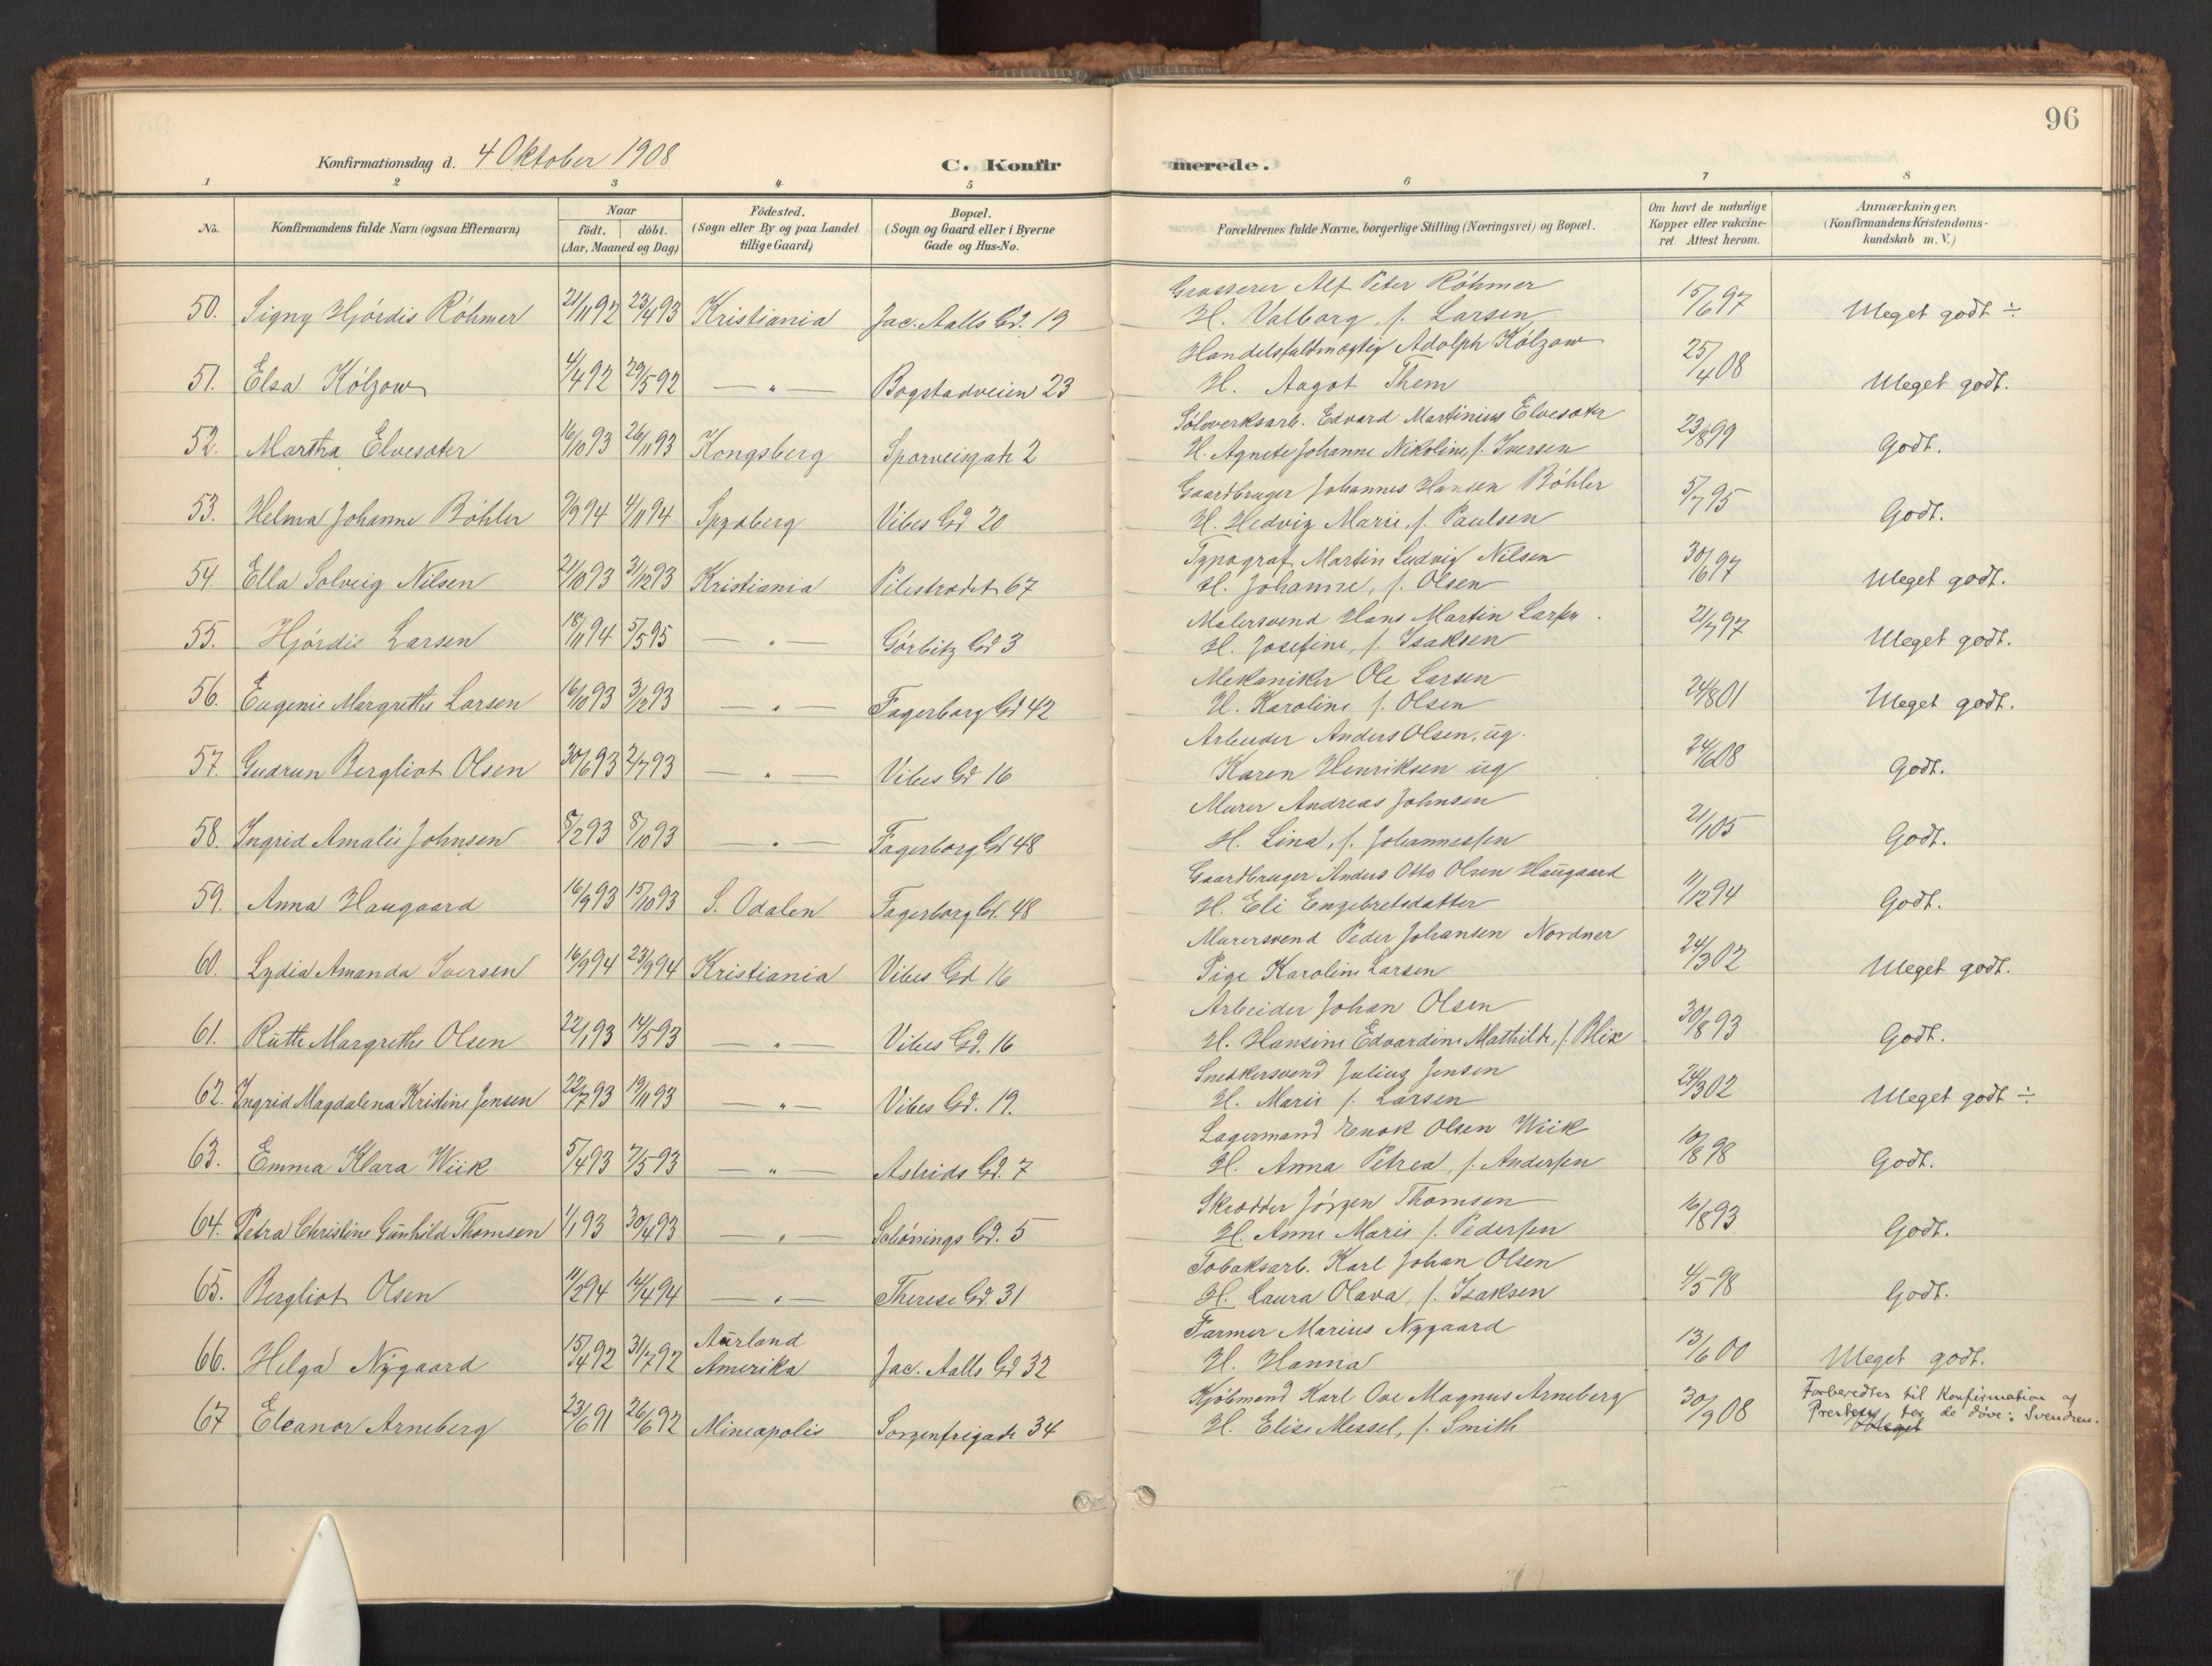 96
Konfirmationsdag d. 4 Oktober 1908 C. Konfirmerede.
1 2 3 4 5 6 7 8
No. Konfirmandens fulde Navn (ogsaa Efternavn) Naar født. døbt. (Aar, Maaned og Dag) Fødested. (Sogn eller By og paa Landet tillige Gaard) Bopæl. (Sogn og Gaard eller i Byerne Gade og Hus-No. Forældrenes fulde Navne, borgerlige Stilling (Næringsvei) og Bopæl. Om havt de naturlige Kopper eller vakcineret. Attest herom. Anmærkninger. (Konfirmandens Kristendomskundskab m. V.)
Grosserer Alf Peter Röhmer
50. Signy Hjördis Röhmer 21/11 92 23/4 93 Kristiania Jac. Aalls Gd. 19 H. Valborg, f. Larsen 15/6 97 Meget godt ÷
Handelsfuldmægtig Adolph Kölzow
51. Elsa Kölzow 4/4 92 29/5 92 — " — Bogstadveien 23 H. Aagot Them 25/4 08 Meget godt.
Sölvverksarb. Edvard Martinius Elvesæter
52. Martha Elvesæter 16/10 93 26/11 93 Kongsberg Sporveisgate 2 H. Agnete Johanne Nikoline, f. Iversen 23/8 99 Godt.
Gaardbruger Johannes Hansen Böhler
53. Helma Johanne Böhler 9/9 94 4/11 94 Spydberg Vibes Gd 20 H. Hedvig Marie, f. Paulsen 5/7 95 Godt.
Typograf Martin Ludvig Nilsen
54. Ella Solveig Nilsen 21/10 93 31/12 93 Kristiania Pilestrædet 67 H. Johanne, f. Olsen 30/6 97 Meget godt.
Malersvend Hans Martin Larsen.
55. Hjördis Larsen 18/11 94 5/5 95 — " — Görbitz Gd 3 H. Josefine, f. Isaksen 21/7 97 Meget godt.
Mekaniker Ole Larsen
56. Eugenie Margrethe Larsen 16/10 93 3/12 93 — " — Fagerborg Gd 42 H. Karoline f. Olsen 24/8 01 Meget godt.
Arbeider Anders Olsen, ug.
57. Gudrun Bergliot Olsen 30/6 93 2/7 93 — " — Vibes Gd 16 Karen Henriksen ug 24/6 08 Godt.
Murer Andreas Johnsen
58. Ingrid Amalie Johnsen 8/2 93 8/10 93 — " — Fagerborg Gd 48 H. Lina, f. Johannessen 21/1 05 Godt.
Gaardbruger Anders Otto Olsen Haugaard
59. Anna Haugaard 16/9 93 15/10 93 S. Odalen Fagerborg Gd. 48 H. Eli Engebretsdatter 11/12 94 Godt.
Murersvend Peder Johansen Nordner
60. Lydia Amanda Iversen 16/9 94 23/9 94 Kristiania Vibes Gd 16 Pige Karoline Larsen 24/3 02 Meget godt.
Arbeider Johan Olsen
61. Ruth Margrethe Olsen 22/1 93 14/5 93 — " — Vibes Gd. 16 H. Hansine Edvardine Mathilde, f. Blix 30/8 93 Godt.
Snedkersvend Julius Jensen
62. Ingrid Magdalena Kristine Jensen 22/7 93 19/11 93 — " — Vibes Gd. 19. H. Marie f. Larsen 24/3 02 Meget godt ÷
Lagermand Enok Olsen Wiik
63. Emma Klara Wiik 5/4 93 7/5 93 — " — Astrids Gd. 7 H. Anna Petrea, f. Andersen 10/8 98 Godt.
Skrædder Jörgen Thomsen
64. Petra Christine Gunhild Thomsen 1/1 93 30/4 93 — " — Schönings Gd. 5 H. Anne Marie f. Pedersen 16/8 93 Godt.
Tobaksarb. Karl Johan Olsen
65. Bergliot Olsen 11/2 94 14/4 94 — " — Therese Gd. 31 H. Laura Olava, f. Isaksen 4/5 98 Godt.
Aurland Farmer Marius Nygaard
66. Helga Nygaard 15/4 92 31/7 92 Amerika Jac. Aalls Gd 32 H. Hanna 13/6 00 Meget godt.
Kjöbmand Karl Ove Magnus Arneberg Forberedtes til Konfirmation af
67 Eleanor Arneberg 23/6 91 26/6 92 Mineapolis Sorgenfrigade 34 H. Elise Messel, f. Smith 30/9 08 Presten for de döve: Svendsen.
Meget